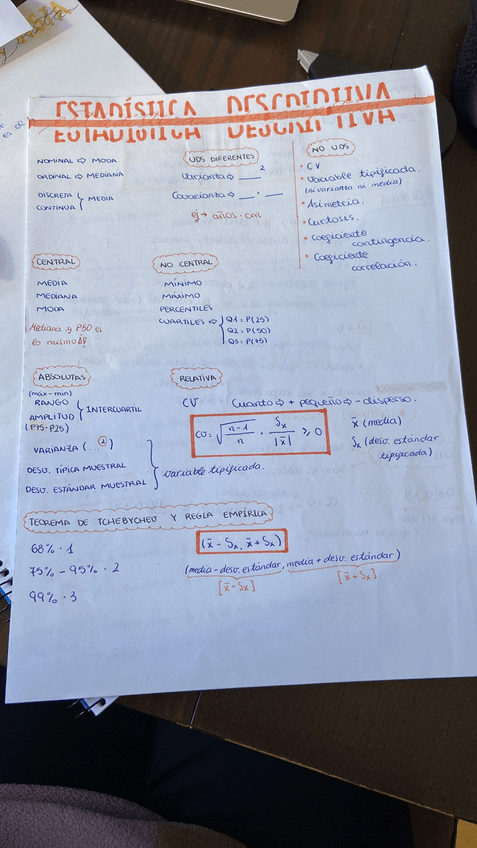 ESTADÍSTICA DESCRIPTIVA
NOMINAL ⇨ MODA
ORDINAL ⇨ MEDIANA
DISCRETA
CONTINUA } MEDIA
UDS DIFERENTES
Varianza ⇨ __²
Covarianza ⇨ __ · __
ej → años · cm
NO UDS
• CV
• Variable tipificada.
(ni varianza ni media)
• Asimetría.
• Curtosis.
• Coeficiente
contingencia.
• Coeficiente
correlación.
CENTRAL
MEDIA
MEDIANA
MODA
Mediana y P50 es
lo mismo
NO CENTRAL
MÍNIMO
MÁXIMO
PERCENTILES
CUARTILES ⇨ { Q1 = P(25)
Q2 = P(50)
Q3 = P(75)
ABSOLUTAS
(máx - min)
RANGO
AMPLITUD } INTERCUARTIL
(P75-P25)
VARIANZA (...²)
DESV. TÍPICA MUESTRAL
DESV. ESTÁNDAR MUESTRAL
} variable tipificada.
RELATIVA
CV Cuanto ⇨ + pequeño ⇨ - disperso.
CV = √(n-1/n) · Sx/|x̄| ≥ 0
x̄ (media)
Sx (desv. estándar
tipificada)
TEOREMA DE TCHEBYCHEV Y REGLA EMPÍRICA
68% · 1
75% - 95% · 2
99% · 3
(x̄ - Sx, x̄ + Sx)
(media - desv. estándar, media + desv. estándar)
[x̄ - Sx] [x̄ + Sx]